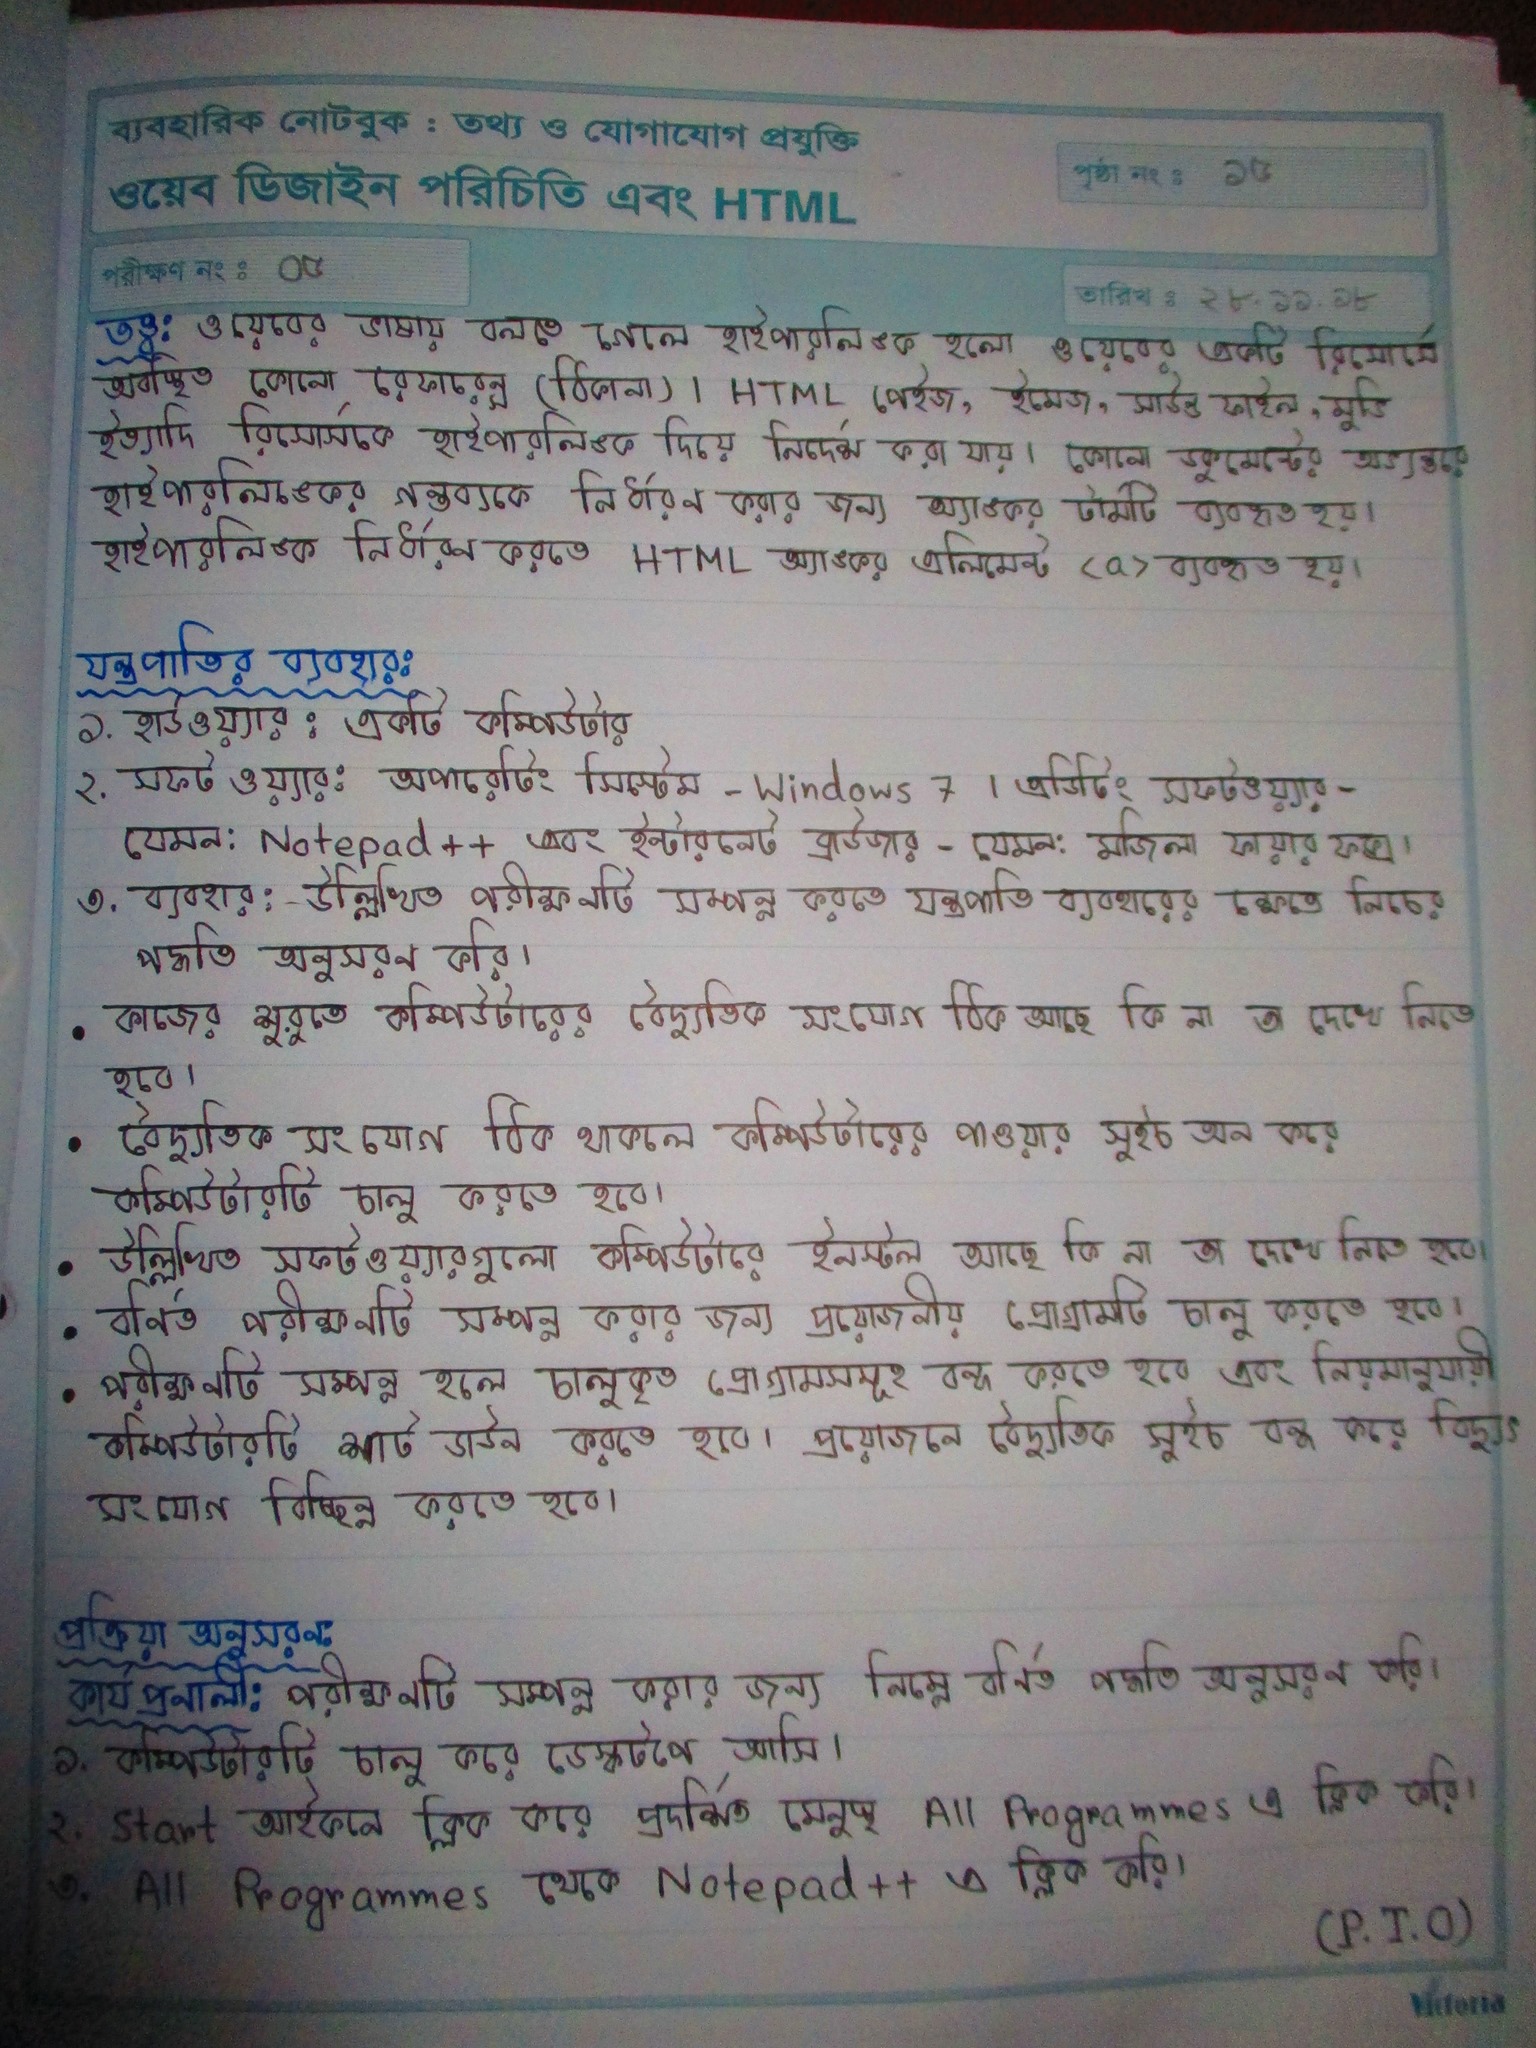 ব্যবহারিক নোটবুক : তথ্য ও যোগাযোগ প্রযুক্তি
ওয়েব ডিজাইন পরিচিতি এবং HTML
পৃষ্ঠা নং : ১৫
পরীক্ষণ নং : ০৫
তারিখ : ২৮.১১.১৮
তত্ত্ব: ওয়েবের ভাষায় বলতে গেলে হাইপারলিঙক হলো ওয়েবের একটি রিসোর্সে
অবস্থিত কোনো রেফারেন্স (ঠিকানা)। HTML পেইজ, ইমেজ, সাউন্ড ফাইল, মুভি
ইত্যাদি রিসোর্সকে হাইপারলিঙক দিয়ে নির্দেশ করা যায়। কোনো ডকুমেন্টের অভ্যন্তরে
হাইপারলিঙেকর গন্তব্যকে নির্ধারন করার জন্য অ্যাঙকর টার্মটি ব্যবহৃত হয়।
হাইপারলিঙক নির্ধারন করতে HTML অ্যাঙকর এলিমেন্ট <a> ব্যবহৃত হয়।
যন্ত্রপাতির ব্যবহার:
১. হার্ডওয়্যার : একটি কম্পিউটার
২. সফটওয়্যার: অপারেটিং সিস্টেম - Windows 7 । এডিটিং সফটওয়্যার -
যেমন: Notepad++ এবং ইন্টারনেট ব্রাউজার - যেমন: মজিলা ফায়ার ফক্স।
৩. ব্যবহার: - উল্লিখিত পরীক্ষনটি সম্পন্ন করতে যন্ত্রপাতি ব্যবহারের ক্ষেত্রে নিচের
পদ্ধতি অনুসরন করি।
• কাজের শুরুতে কম্পিউটারের বৈদ্যুতিক সংযোগ ঠিক আছে কি না তা দেখে নিতে
হবে।
• বৈদ্যুতিক সংযোগ ঠিক থাকলে কম্পিউটারের পাওয়ার সুইচ অন করে
কম্পিউটারটি চালু করতে হবে।
• উল্লিখিত সফটওয়্যারগুলো কম্পিউটারে ইনস্টল আছে কি না তা দেখে নিতে হবে।
• বর্নিত পরীক্ষনটি সম্পন্ন করার জন্য প্রয়োজনীয় প্রোগ্রামটি চালু করতে হবে।
• পরীক্ষনটি সম্পন্ন হলে চালুকৃত প্রোগ্রামসমূহ বন্ধ করতে হবে এবং নিয়মানুযায়ী
কম্পিউটারটি শাট ডাউন করতে হবে। প্রয়োজনে বৈদ্যুতিক সুইচ বন্ধ করে বিদ্যুৎ
সংযোগ বিচ্ছিন্ন করতে হবে।
প্রক্রিয়া অনুসরন:
কার্যপ্রনালী: পরীক্ষনটি সম্পন্ন করার জন্য নিম্নে বর্নিত পদ্ধতি অনুসরন করি।
১. কম্পিউটারটি চালু করে ডেস্কটপে আসি।
২. Start আইকনে ক্লিক করে প্রদর্শিত মেনুস্থ All Programmes এ ক্লিক করি।
৩. All Programmes থেকে Notepad++ এ ক্লিক করি।
(P.T.O)
Victoria